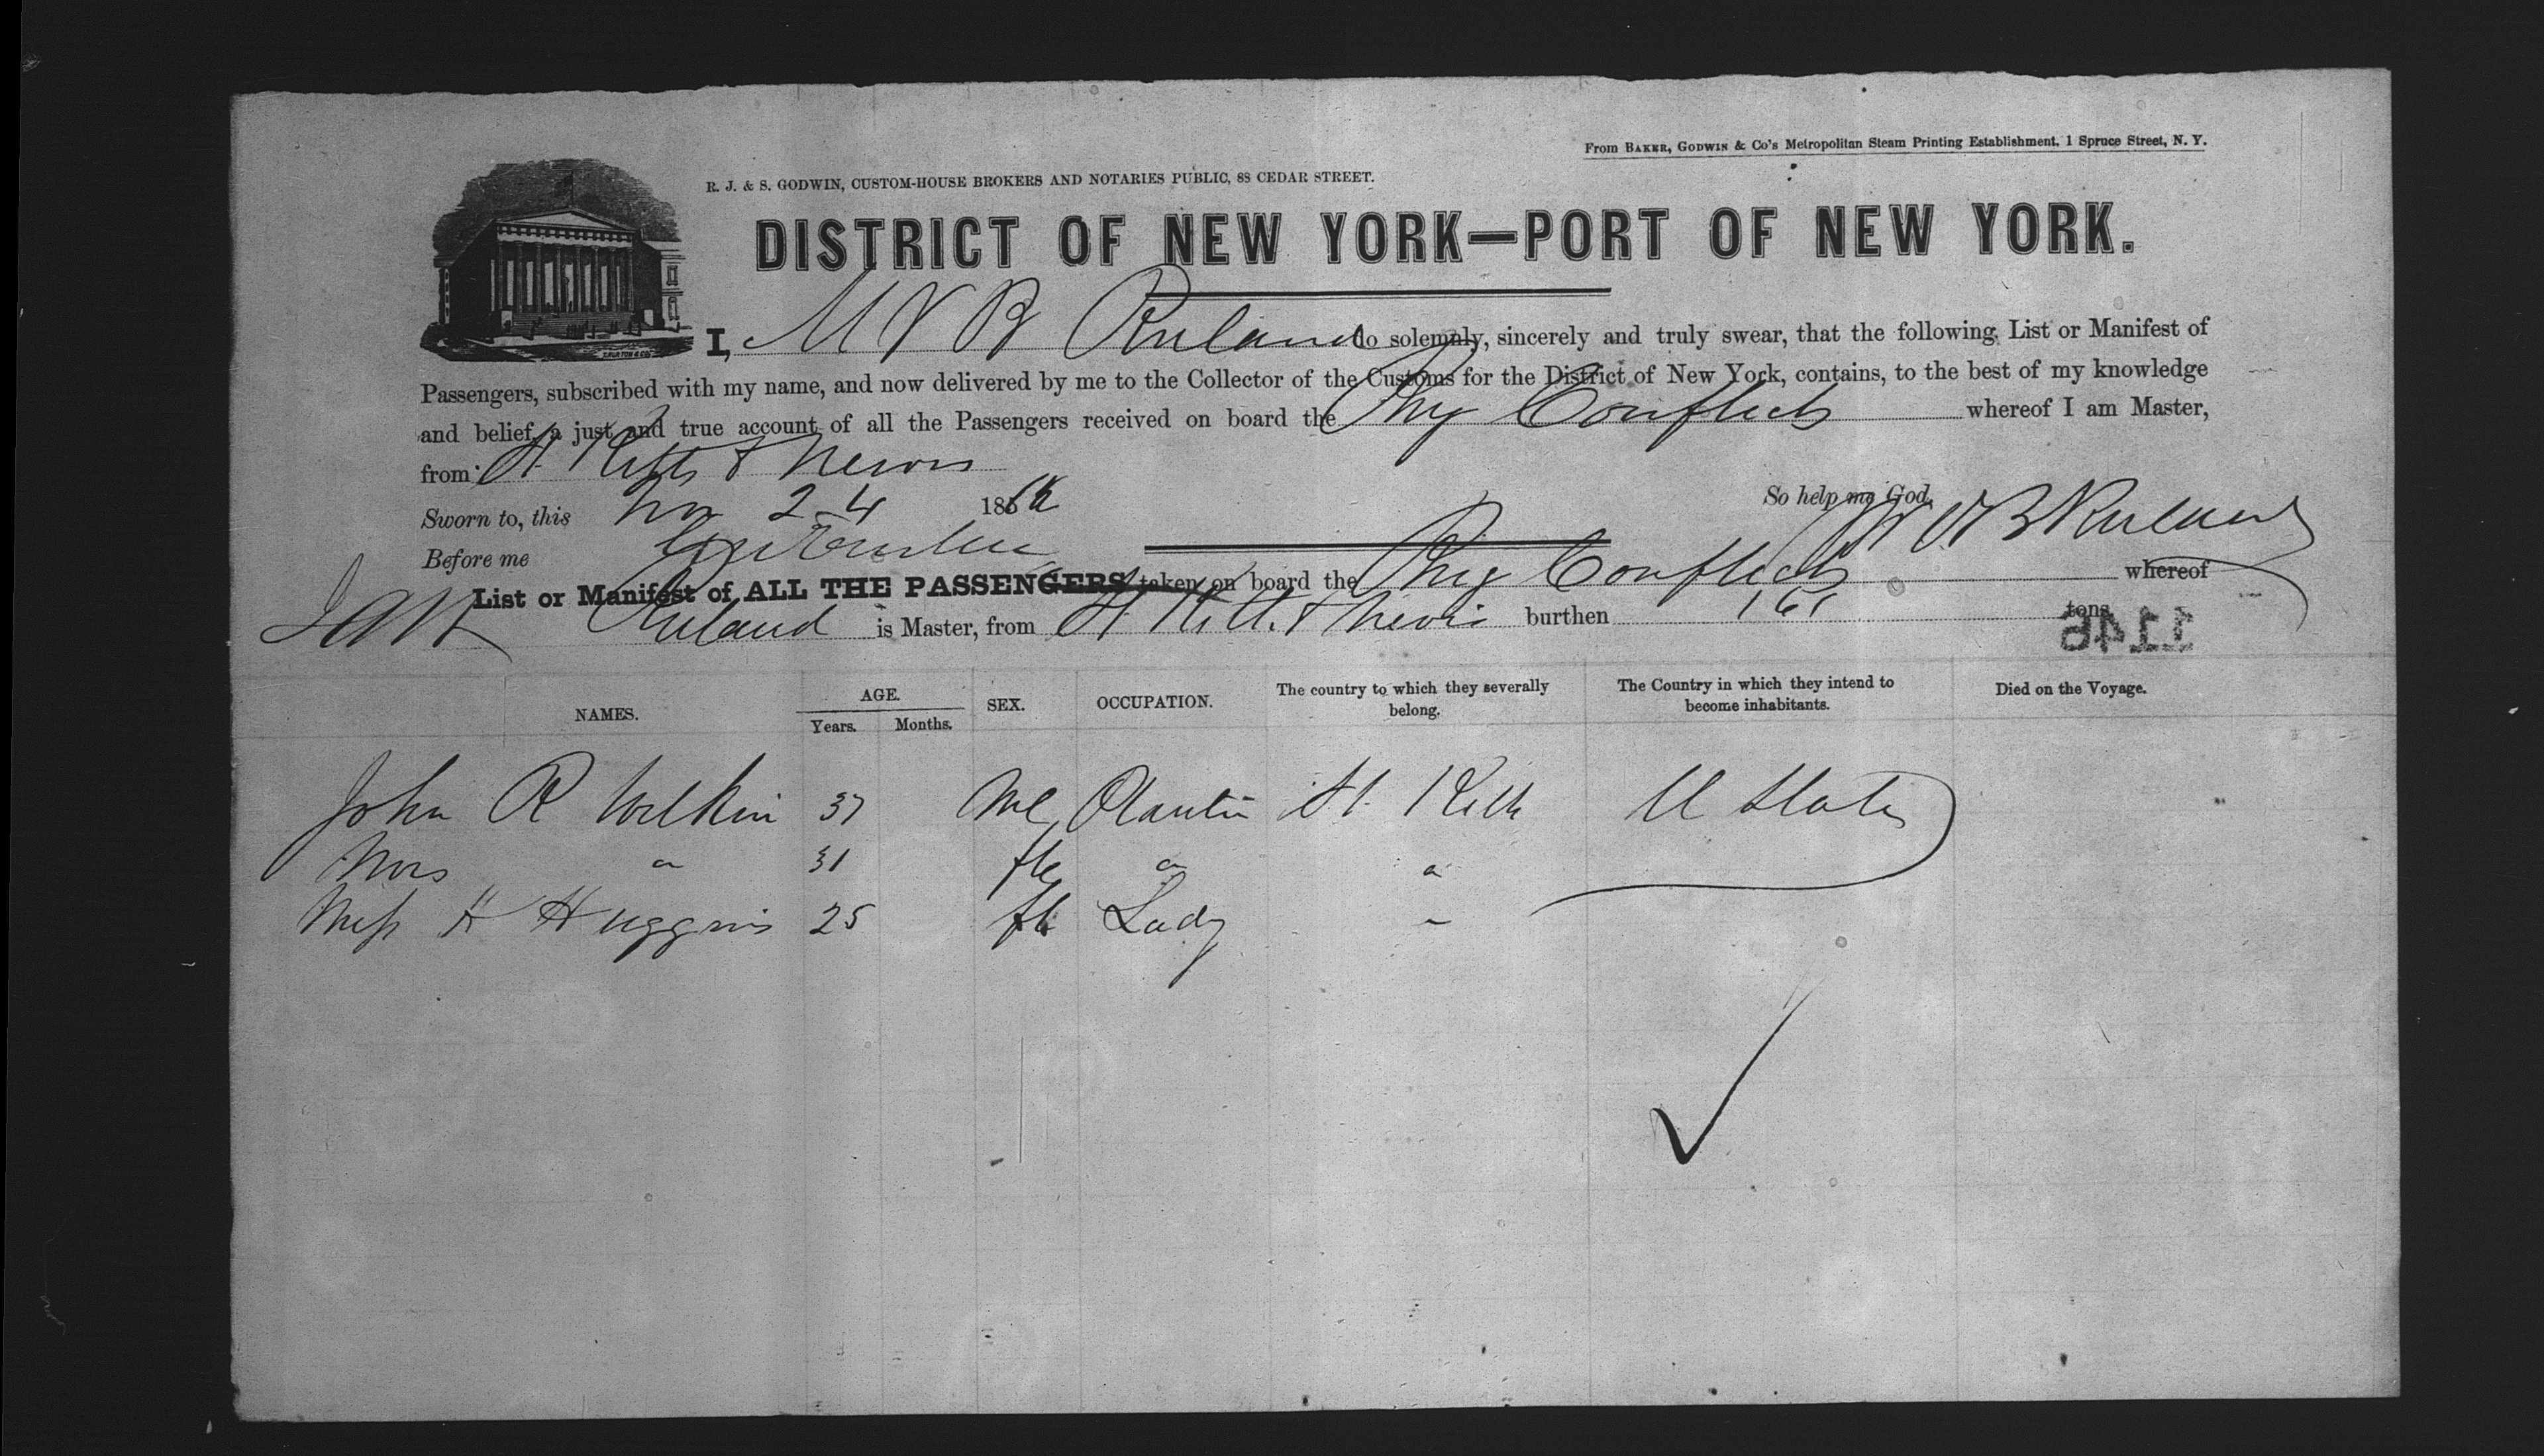 From BAKER, GODWIN & Co's Metropolitan Steam Printing Establishment, 1 Spruce Street, N. Y.
R. J. & S. GODWIN, CUSTOM-HOUSE BROKERS AND NOTARIES PUBLIC, 88 CEDAR STREET.
DISTRICT OF NEW YORK—PORT OF NEW YORK.
I, M V B Ruland do solemnly, sincerely and truly swear, that the following List or Manifest of
Passengers, subscribed with my name, and now delivered by me to the Collector of the Customs for the District of New York, contains, to the best of my knowledge
and belief, a just and true account of all the Passengers received on board the Brig Conflict whereof I am Master,
from St Kitts & Nevis
Sworn to, this Nov 24 186
So help me God,
M V B Ruland
Before me
List or Manifest of ALL THE PASSENGERS taken on board the Brig Conflict whereof
Ruland is Master, from St Kitts & Nevis burthen 161 tons
1146
NAMES. AGE. Years. Months. SEX. OCCUPATION. The country to which they severally belong. The Country in which they intend to become inhabitants. Died on the Voyage.
John R Wilkin 37 Me Planter St Kitts U States
Mrs " 31 fle " "
Miss H Huggins 25 fle Lady "